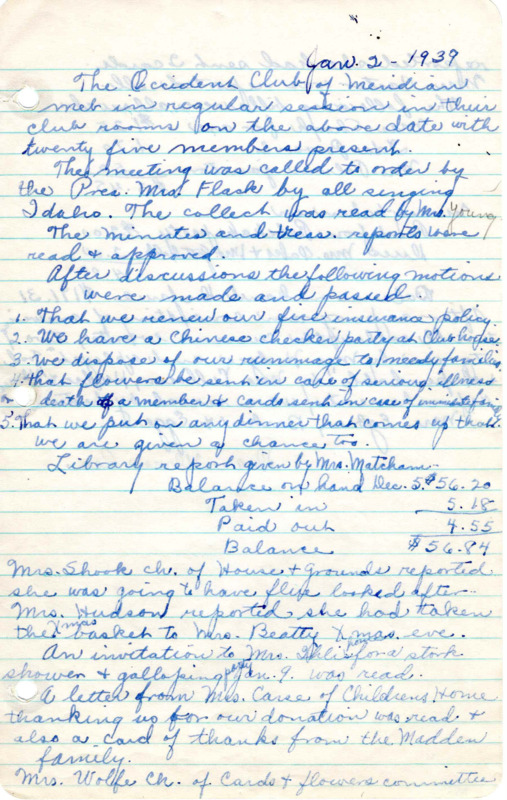 Jan. 2 - 1939
The Occident Club of Meridian
met in regular session in their
club rooms on the above date with
twenty five members present.
The meeting was called to order by
the Pres. Mrs. Flack by all singing
Idaho. The collect was read by Mrs. Young
The minutes and treas. reports were
read & approved.
After discussions the following motions
were made and passed.
1. That we renew our fire insurance policy.
2. We have a Chinese checker party at Club house.
3. We dispose of our rummage to needy families
4. That flowers be sent in case of serious illness
or death of a member & cards sent in case of
5. That we put on any dinner that comes up that
we are given a chance too.
Library report given by Mrs. Matcham
Balance on hand Dec. 5. $56.20
Taken in 5.18
Paid out 4.55
Balance $56.84
Mrs. Shook Ch. of House & Grounds reported
she was going to have flue looked after
Mrs. Hudson reported she had taken
the Xmas basket to Mrs. Beatty Xmas eve.
An invitation to Mrs. home for a stork
shower & galloping party Jan. 9. was read.
A letter from Mrs. Carse of Childrens Home
thanking us for our donation was read &
also a card of thanks from the Madden
family.
Mrs. Wolfe Ch. of Cards & flowers committee